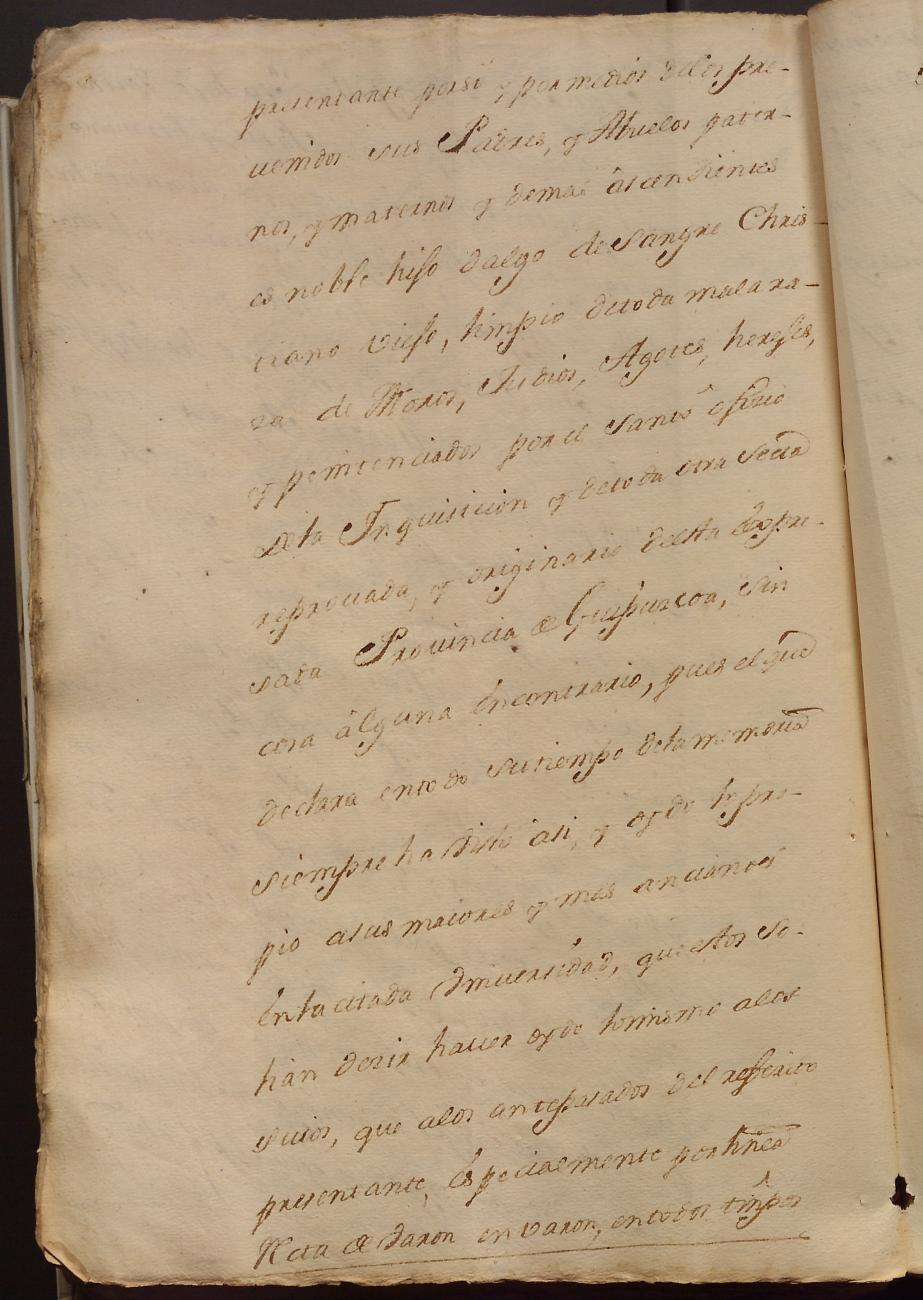 presentante persi y por medios delos pre-
uenidos sus Padres, y Abuelos pater-
nos, y maternos y demas âscendientes
es noble hijo dalgo de sangre Chris-
tiano viejo, limpio detoda mala ra-
za de Moros, Judios, Agotes, herejes,
y penitenciados por el santô ofizio
dela Inquisicion y detoda otra secta
reprouada, y originario desta êxpre-
sada Provincia de Guipuzcoa, sin
cosa âlguna êncontrario, pues el que
declara entodo sutiempo delamemoria
siempre ha visto asi, y oydo lo pro-
pio asus maiores y mas ancianos
ênla citada Vniuersidad, que êstos so-
hian dezir hauer oydo lomismo alos
suios, que alos antepasados del refferito
presentante, êspecialmente por linea
Recta de varon en varon, entodos tiêmpos